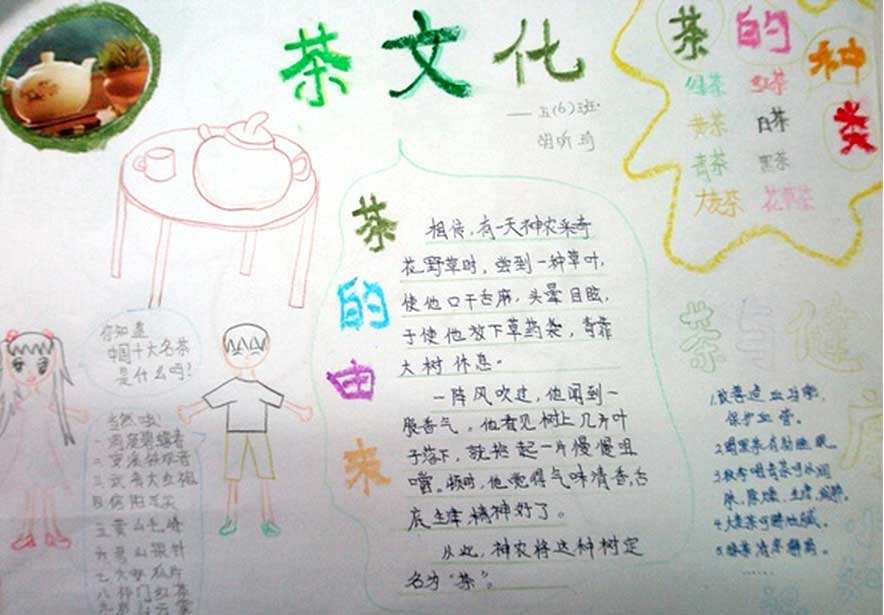 茶文化
五(6)班
茶的种类
绿茶 红茶
黄茶 白茶
青茶 黑茶
大麦茶 花草茶
茶的由来
相传,有一天神农采奇
花野草时,尝到一种草叶,
使他口干舌麻,头晕目眩,
于使他放下草药袋,背靠
大树休息。
一阵风吹过,他闻到一
股香气。他看见树上几片叶
子落下,就拾起一片慢慢咀
嚼。顿时,他觉得气味清香,舌
底生津,精神好了。
从此,神农将这种树定
名为“茶”。
你知道
中国十大名茶
是什么吗?
当然啦!
一.洞庭碧螺春
二.安溪铁观音
三.武夷大红袍
四.信阳毛尖
五.黄山毛峰
六.君山银针
七.六安瓜片
八.祁门红茶
茶与健康
小知识
1.改善造血功能,
保护血管。
4.大麦茶可解油腻。
......